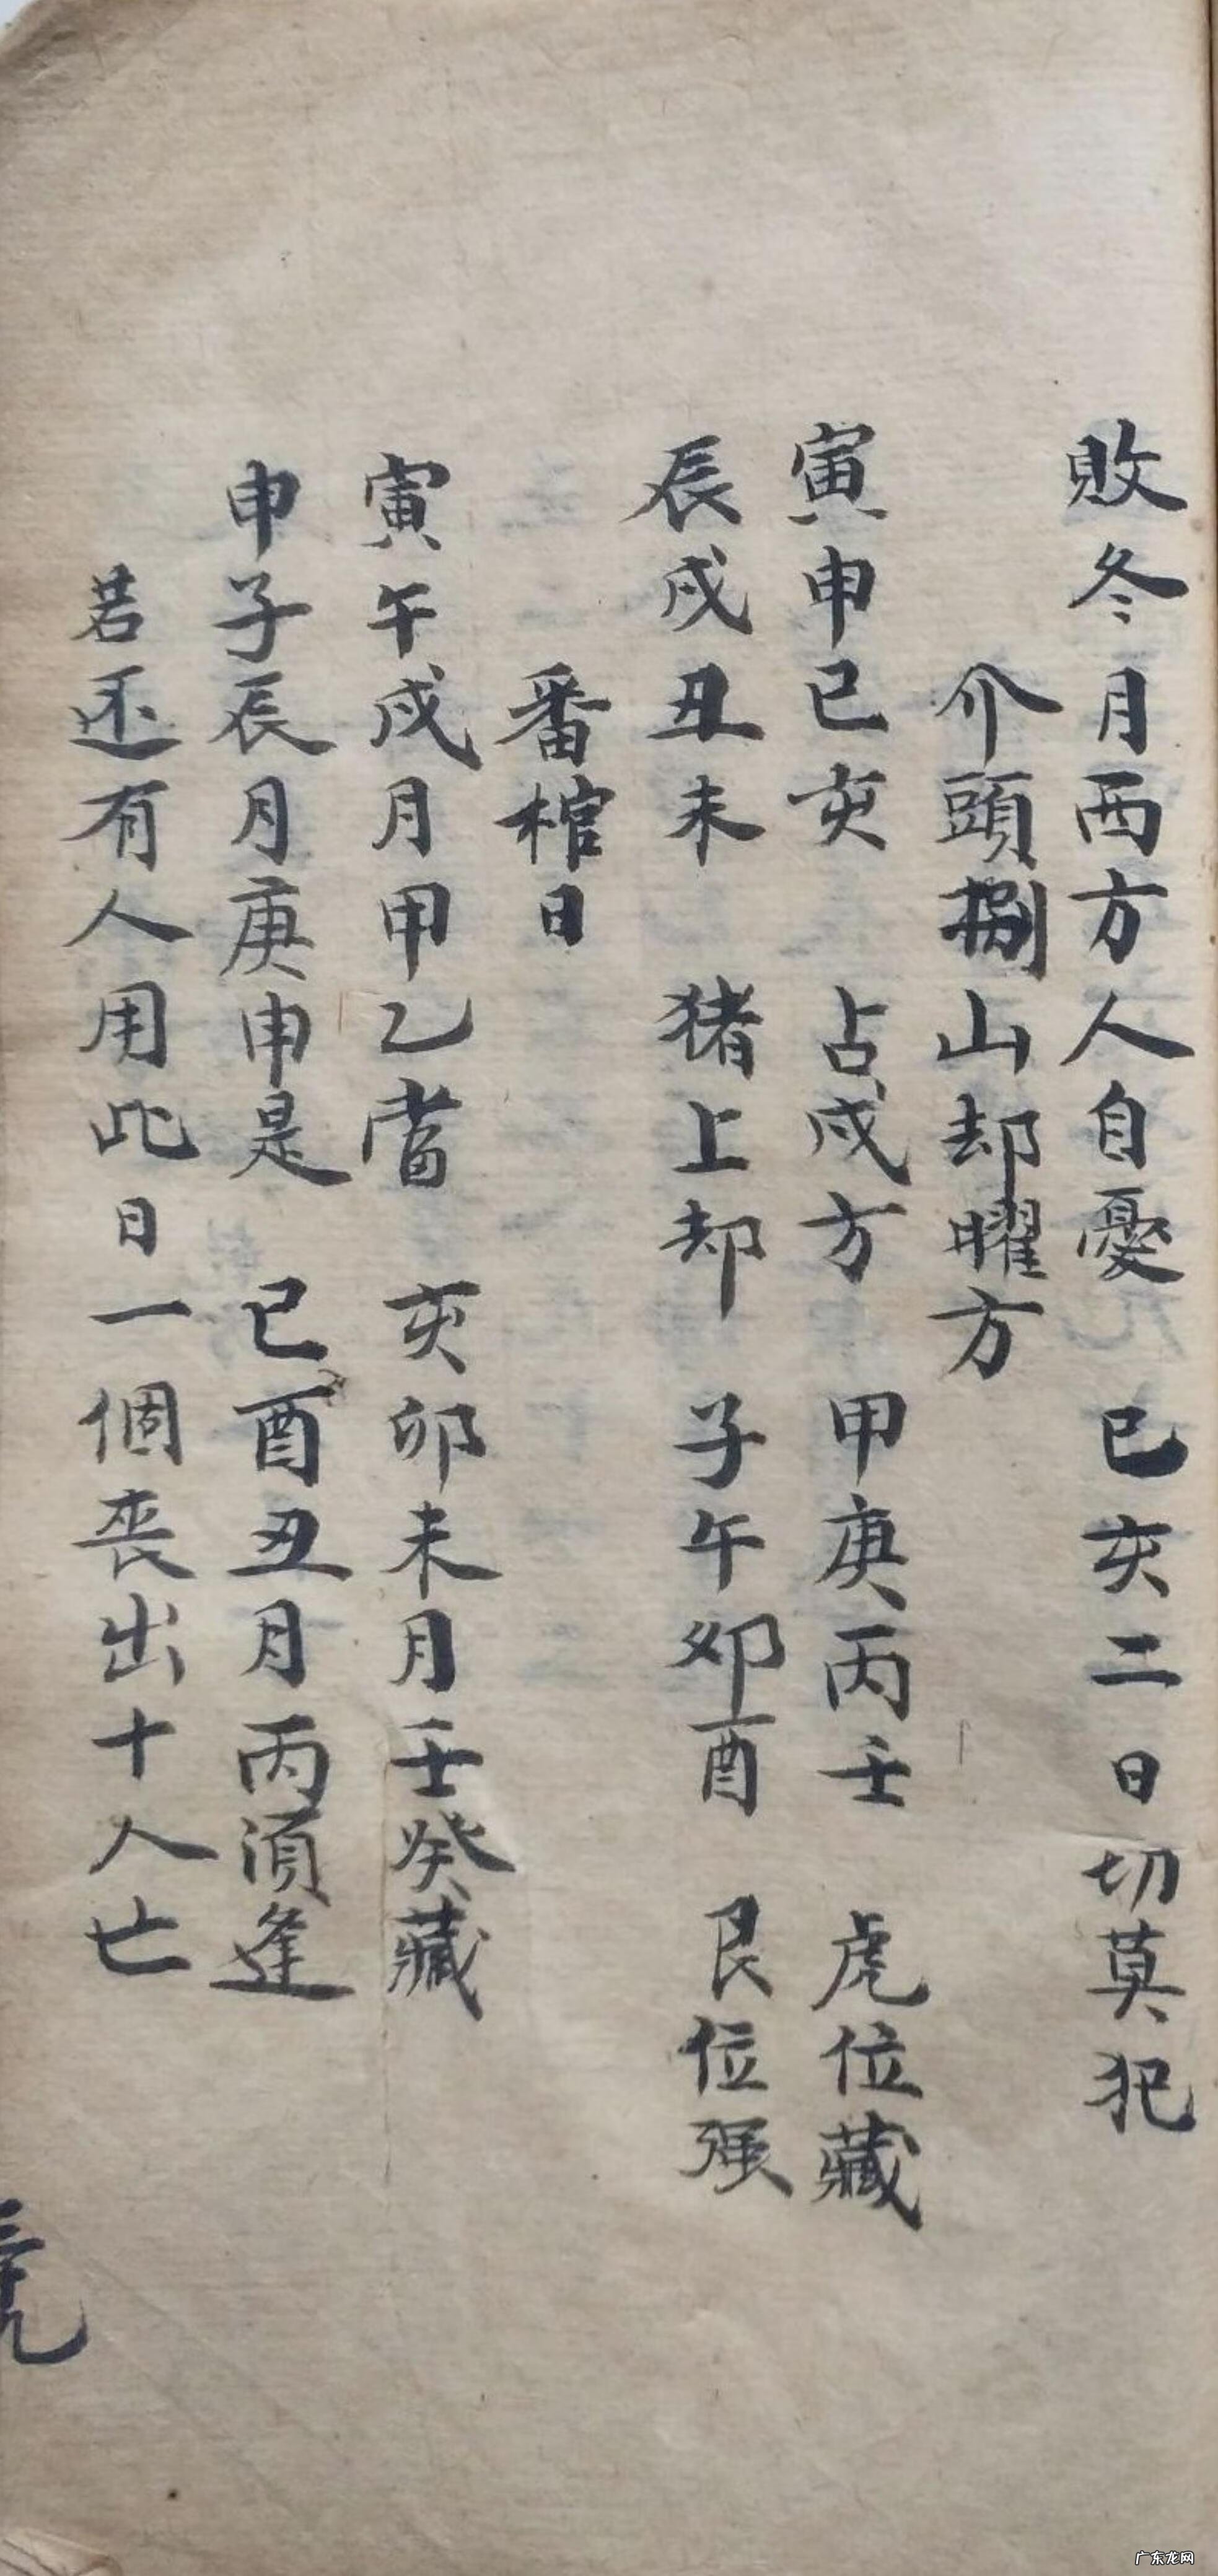 敗冬月西方人自憂 巳亥二日切莫犯
介頭捌山却曜方
寅申巳亥 占戍方 甲庚丙壬 虎位藏
辰戍丑未 猪上却 子午卯酉 艮位强
番棺日
寅午戍月甲乙當 亥卯未月壬癸藏
申子辰月庚申是 巳酉丑月丙須逢
若还有人用此日一個喪出十人亡
广东龙网